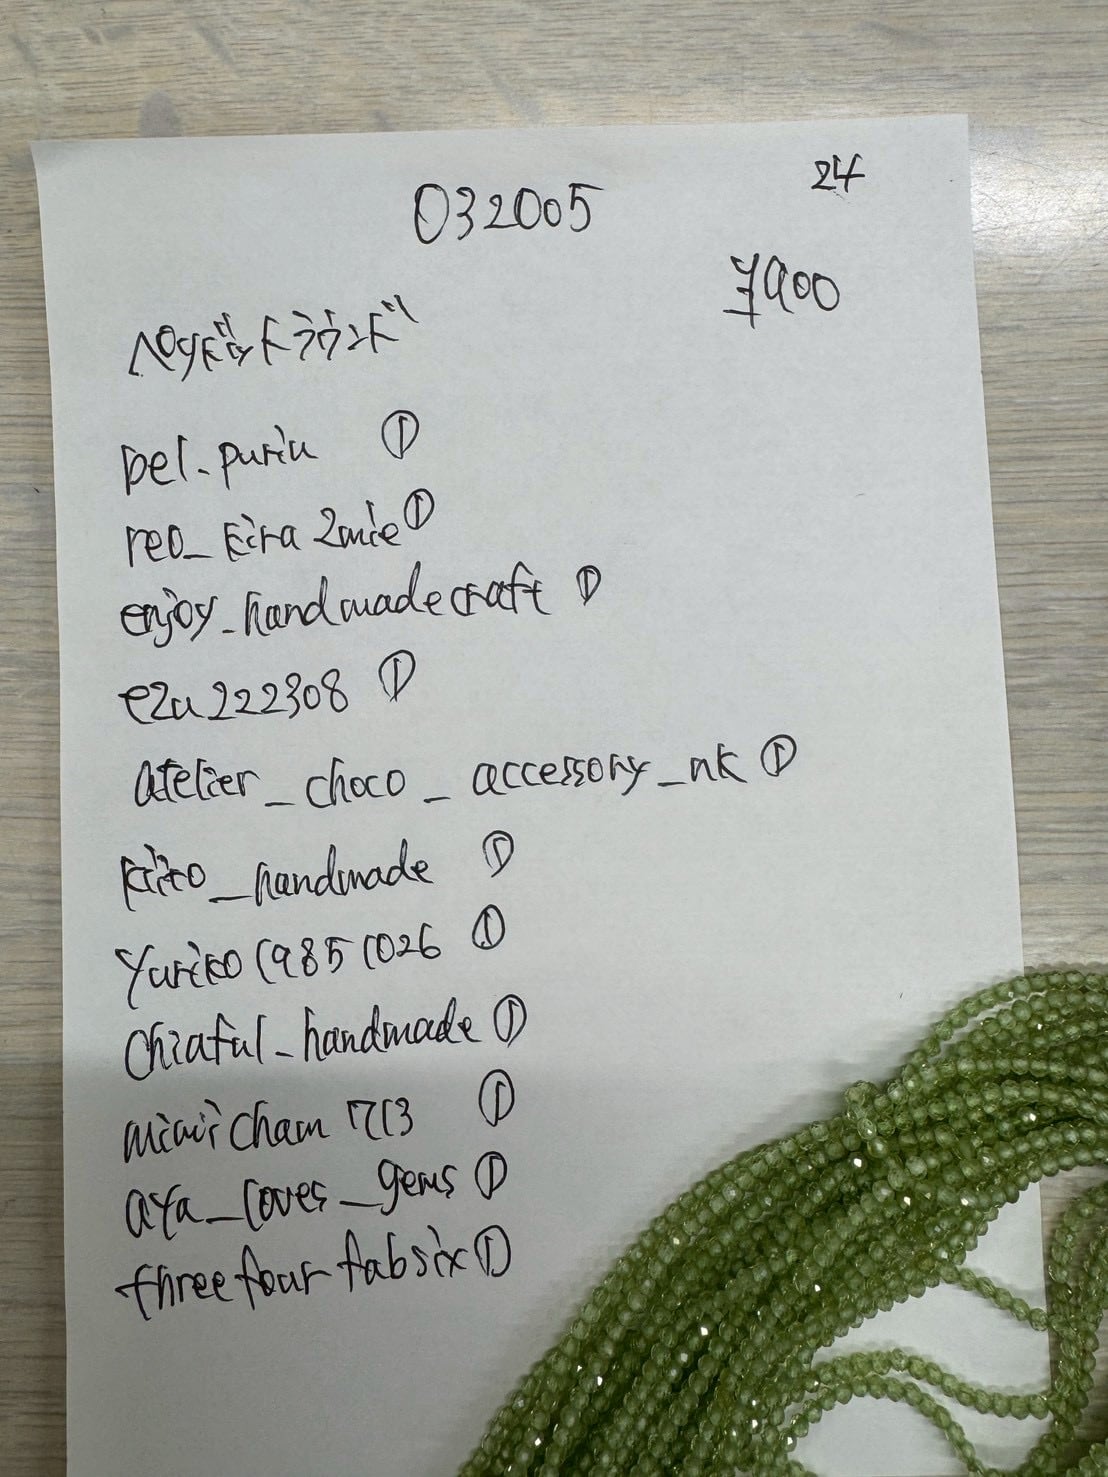 032005
24
¥900
ペリドットラウンド
bel_puriu ①
reo_kira2mie ①
enjoy_handmadecraft ①
ezu222308 ①
atelier_choco_accessory_nk ①
kiito_handmade ①
yuriko19851026 ①
chiaful_handmade ①
mimicham 713 ①
aya_loves_gems ①
threefourfabsix ①